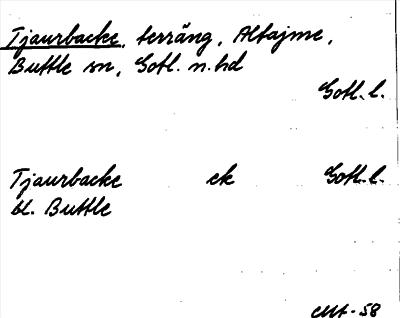 Tjaurbacke, terräng, Altajme,
Buttle sn, Gotl. n. hd
Gotl. l.
Tjaurbacke ek Gotl. l.
bl. Buttle
-58